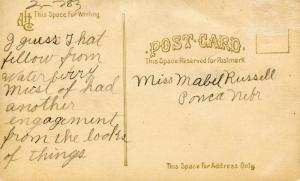 2-783
AHC
This Space for Writing.
I guess That
fellow from
Waterbury
must of had
another
engagement
from the looks
of things
POST-CARD.
This Space Reserved for Postmark
Miss Mabel Russell
Ponca Nebr
This Space for Address Only.